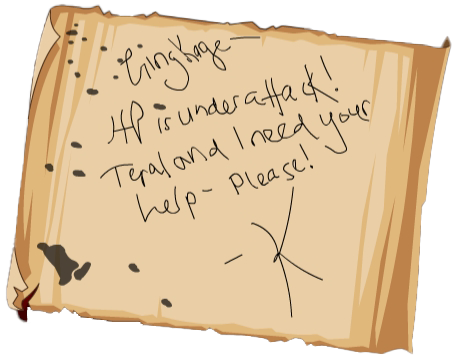 GingKage—
HP is under attack!
Teral and I need your
help- Please!
-X